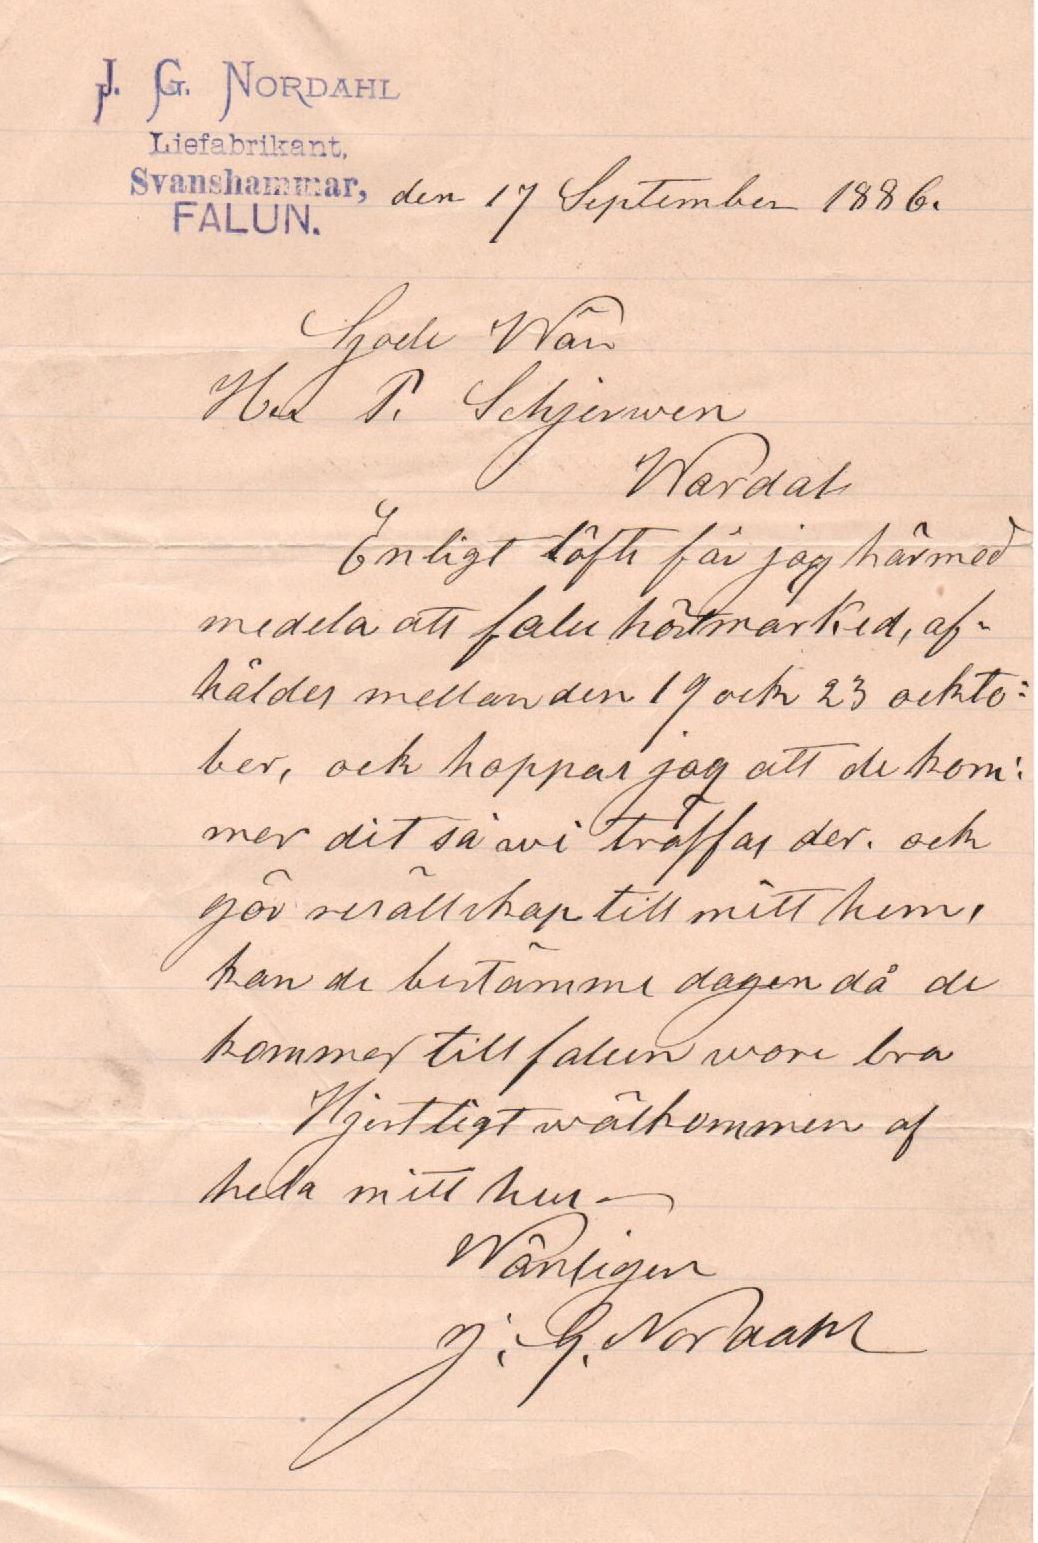 J. G. NORDAHL
Liefabrikant,
Svanshammar,
FALUN.
den 17 September 1886.
Gode Wän
Her P. Schjerwen
Wardal
Enligt löfte får jag härmed
medela att falu höstmarked, af-
håldes mellan den 19 och 23 ockto:
ber, och hoppas jag att de kom:
mer dit så wi träffas der. och
gör resällskap till mitt hem,
kan de bestämme dagen då de
kommer till falun wore bra
Hjertligt wälkommen af
hela mitt hus
Wänligen
J. G. Nordahl